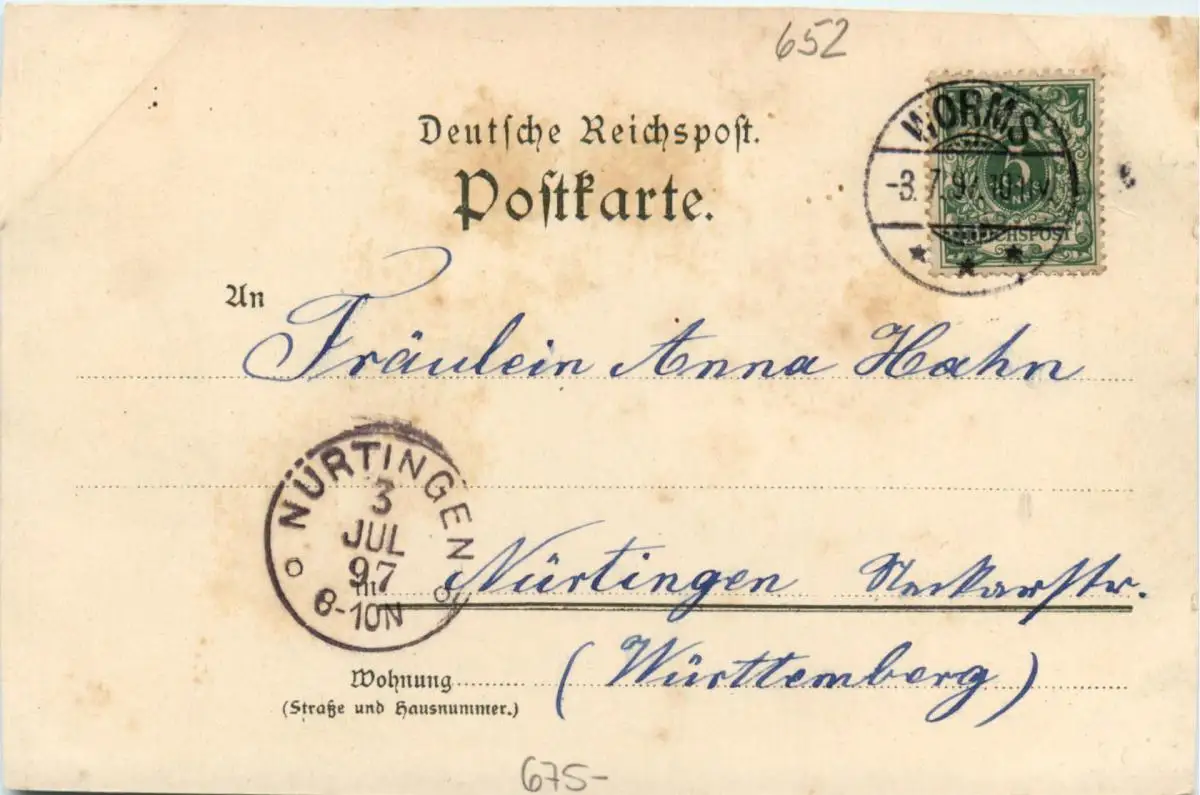 652
Deutsche Reichspost.
Postkarte.
WORMS
-3.7.97. 10-11 V.
5
REICHSPOST
An
Fräulein Anna Hahn
NÜRTINGEN
3
JUL
97
8-10N
Nürtingen Neckarstr.
(Württemberg)
Wohnung
(Straße und Hausnummer.)
675-